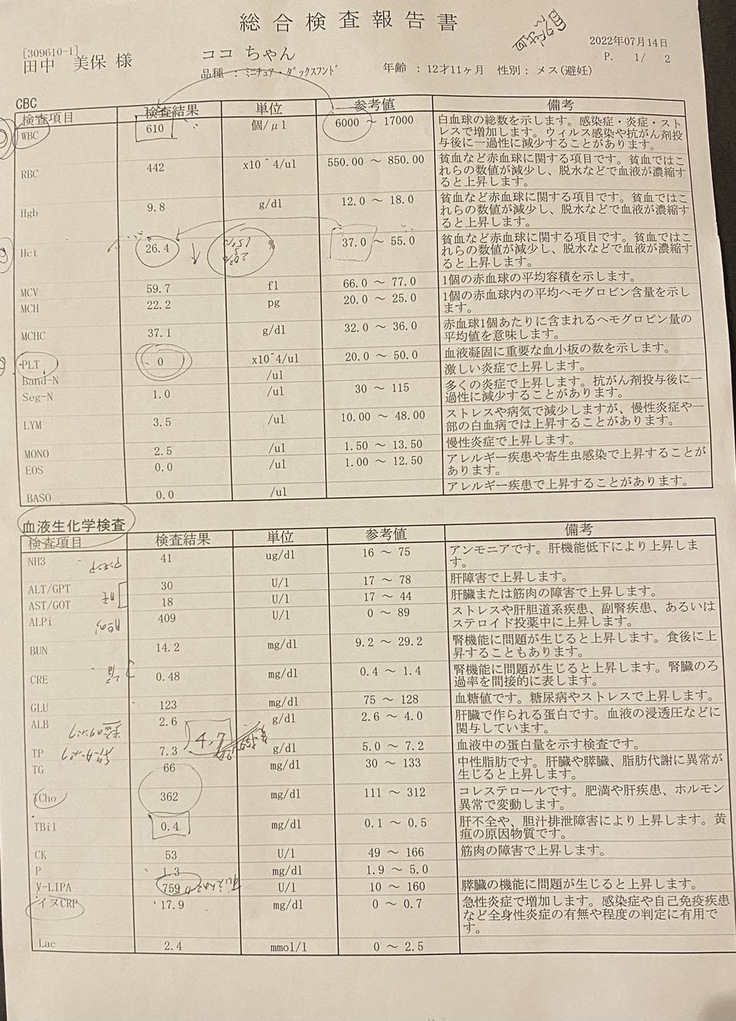 総合検査報告書
[309610-1]
田中 美保 様
ココ ちゃん
2022年07月14日
P. 1/ 2
品種 : ミニチュア・ダックスフンド 年齢 : 12才11ヶ月 性別 : メス(避妊)
CBC
検査項目 検査結果 単位 参考値 備考
WBC 610 個/μl 6000 ～ 17000 白血球の総数を示します。感染症・炎症・スト
レスで増加します。ウィルス感染や抗がん剤投
与後に一過性に減少することがあります。
RBC 442 x10^4/ul 550.00 ～ 850.00 貧血など赤血球に関する項目です。貧血ではこ
れらの数値が減少し、脱水などで血液が濃縮す
ると上昇します。
Hgb 9.8 g/dl 12.0 ～ 18.0 貧血など赤血球に関する項目です。貧血ではこ
れらの数値が減少し、脱水などで血液が濃縮す
ると上昇します。
Hct 26.4 37.0 ～ 55.0 貧血など赤血球に関する項目です。貧血ではこ
れらの数値が減少し、脱水などで血液が濃縮す
ると上昇します。
MCV 59.7 fl 66.0 ～ 77.0 1個の赤血球の平均容積を示します。
MCH 22.2 pg 20.0 ～ 25.0 1個の赤血球内の平均ヘモグロビン含量を示し
ます。
MCHC 37.1 g/dl 32.0 ～ 36.0 赤血球1個あたりに含まれるヘモグロビン量の
平均値を意味します。
PLT 0 x10^4/ul 20.0 ～ 50.0 血液凝固に重要な血小板の数を示します。
Band-N /ul 激しい炎症で上昇します。
Seg-N 1.0 /ul 30 ～ 115 多くの炎症で上昇します。抗がん剤投与後に一
過性に減少することがあります。
LYM 3.5 /ul 10.00 ～ 48.00 ストレスや病気で減少しますが、慢性炎症や一
部の白血病では上昇することがあります。
MONO 2.5 /ul 1.50 ～ 13.50 慢性炎症で上昇します。
EOS 0.0 /ul 1.00 ～ 12.50 アレルギー疾患や寄生虫感染で上昇することが
あります。
BASO 0.0 /ul アレルギー疾患で上昇することがあります。
血液生化学検査
検査項目 検査結果 単位 参考値 備考
NH3 41 ug/dl 16 ～ 75 アンモニアです。肝機能低下により上昇しま
す。
ALT/GPT 30 U/l 17 ～ 78 肝障害で上昇します。
AST/GOT 18 U/l 17 ～ 44 肝臓または筋肉の障害で上昇します。
ALPi 409 U/l 0 ～ 89 ストレスや肝胆道系疾患、副腎疾患、あるいは
ステロイド投薬中に上昇します。
BUN 14.2 mg/dl 9.2 ～ 29.2 腎機能に問題が生じると上昇します。食後に上
昇することもあります。
CRE 0.48 mg/dl 0.4 ～ 1.4 腎機能に問題が生じると上昇します。腎臓のろ
過率を間接的に表します。
GLU 123 mg/dl 75 ～ 128 血糖値です。糖尿病やストレスで上昇します。
ALB 2.6 g/dl 2.6 ～ 4.0 肝臓で作られる蛋白です。血液の浸透圧などに
関与しています。
TP 7.3 g/dl 5.0 ～ 7.2 血液中の蛋白量を示す検査です。
4.7
TG 66 mg/dl 30 ～ 133 中性脂肪です。肝臓や膵臓、脂肪代謝に異常が
生じると上昇します。
TCho 362 mg/dl 111 ～ 312 コレステロールです。肥満や肝疾患、ホルモン
異常で変動します。
TBil 0.4 mg/dl 0.1 ～ 0.5 肝不全や、胆汁排泄障害により上昇します。黄
疸の原因物質です。
CK 53 U/l 49 ～ 166 筋肉の障害で上昇します。
P 1.3 mg/dl 1.9 ～ 5.0
V-LIPA 759 U/l 10 ～ 160 膵臓の機能に問題が生じると上昇します。
イヌCRP 17.9 mg/dl 0 ～ 0.7 急性炎症で増加します。感染症や自己免疫疾患
など全身性炎症の有無や程度の判定に有用で
す。
Lac 2.4 mmol/l 0 ～ 2.5